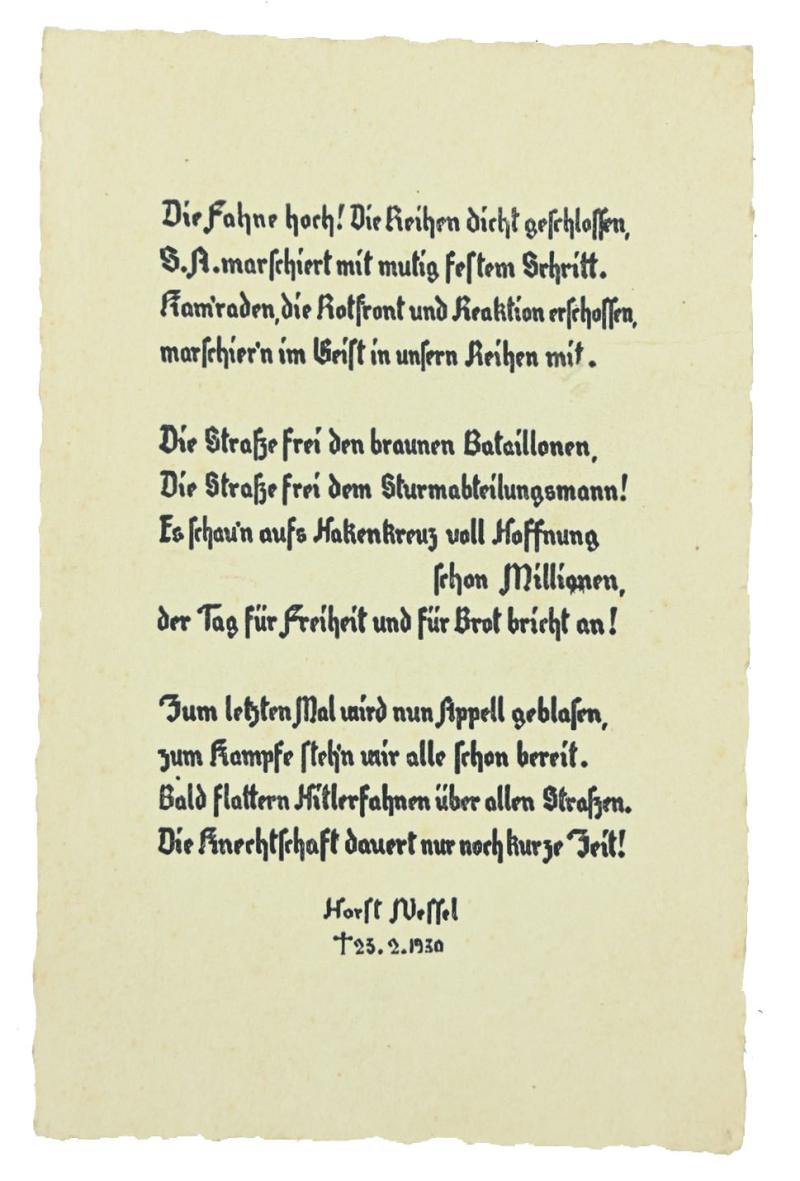 Die Fahne hoch! Die Reihen dicht geschlossen,
S.A. marschiert mit mutig festem Schritt.
Kam'raden, die Rotfront und Reaktion erschossen,
marschier'n im Geist in unsern Reihen mit.
Die Straße frei den braunen Bataillonen,
Die Straße frei dem Sturmabteilungsmann!
Es schau'n aufs Hakenkreuz voll Hoffnung
schon Millionen,
der Tag für Freiheit und für Brot bricht an!
Zum letzten Mal wird nun Appell geblasen,
zum Kampfe steh'n wir alle schon bereit.
Bald flattern Hitlerfahnen über allen Straßen.
Die Knechtschaft dauert nur noch kurze Zeit!
Horst Wessel
†23. 2. 1930